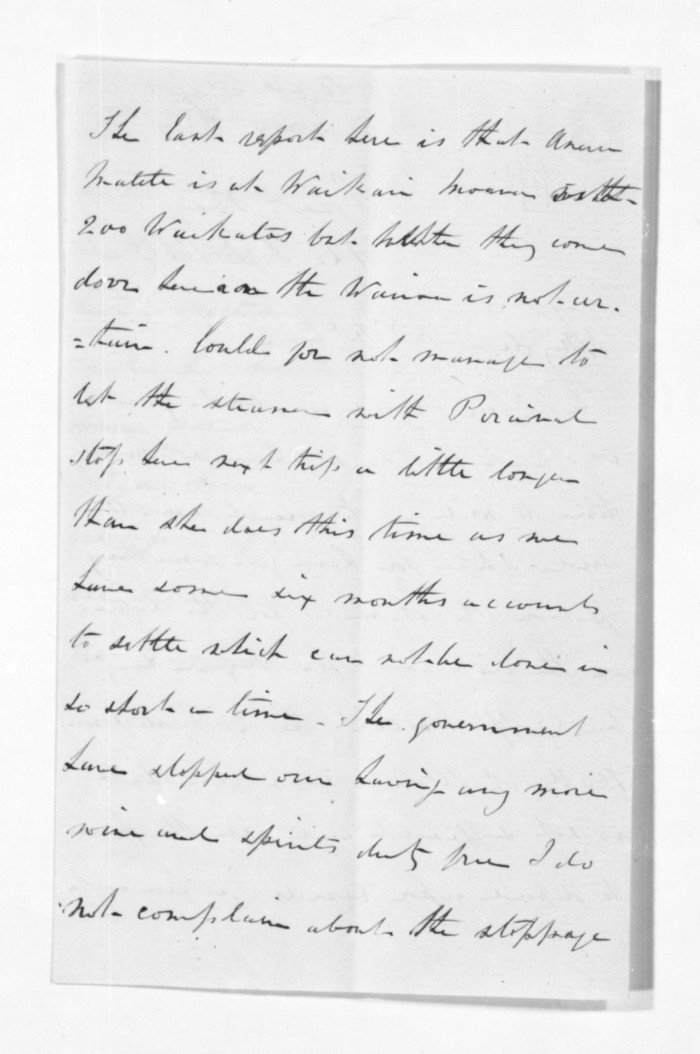 The last report here is that Anaru
Matete is at Waikari Moana with
200 Waikatos but whether they come
down here or the Wairoa is not cer-
=tain. Could you not manage to
let the steamer with Percival
stop here next trip a little longer
than she does this time as we
have some six months accounts
to settle which can not be done in
so short a time - The government
have stopped our having any more
wine and spirits duty free I do
not complain about the stoppage